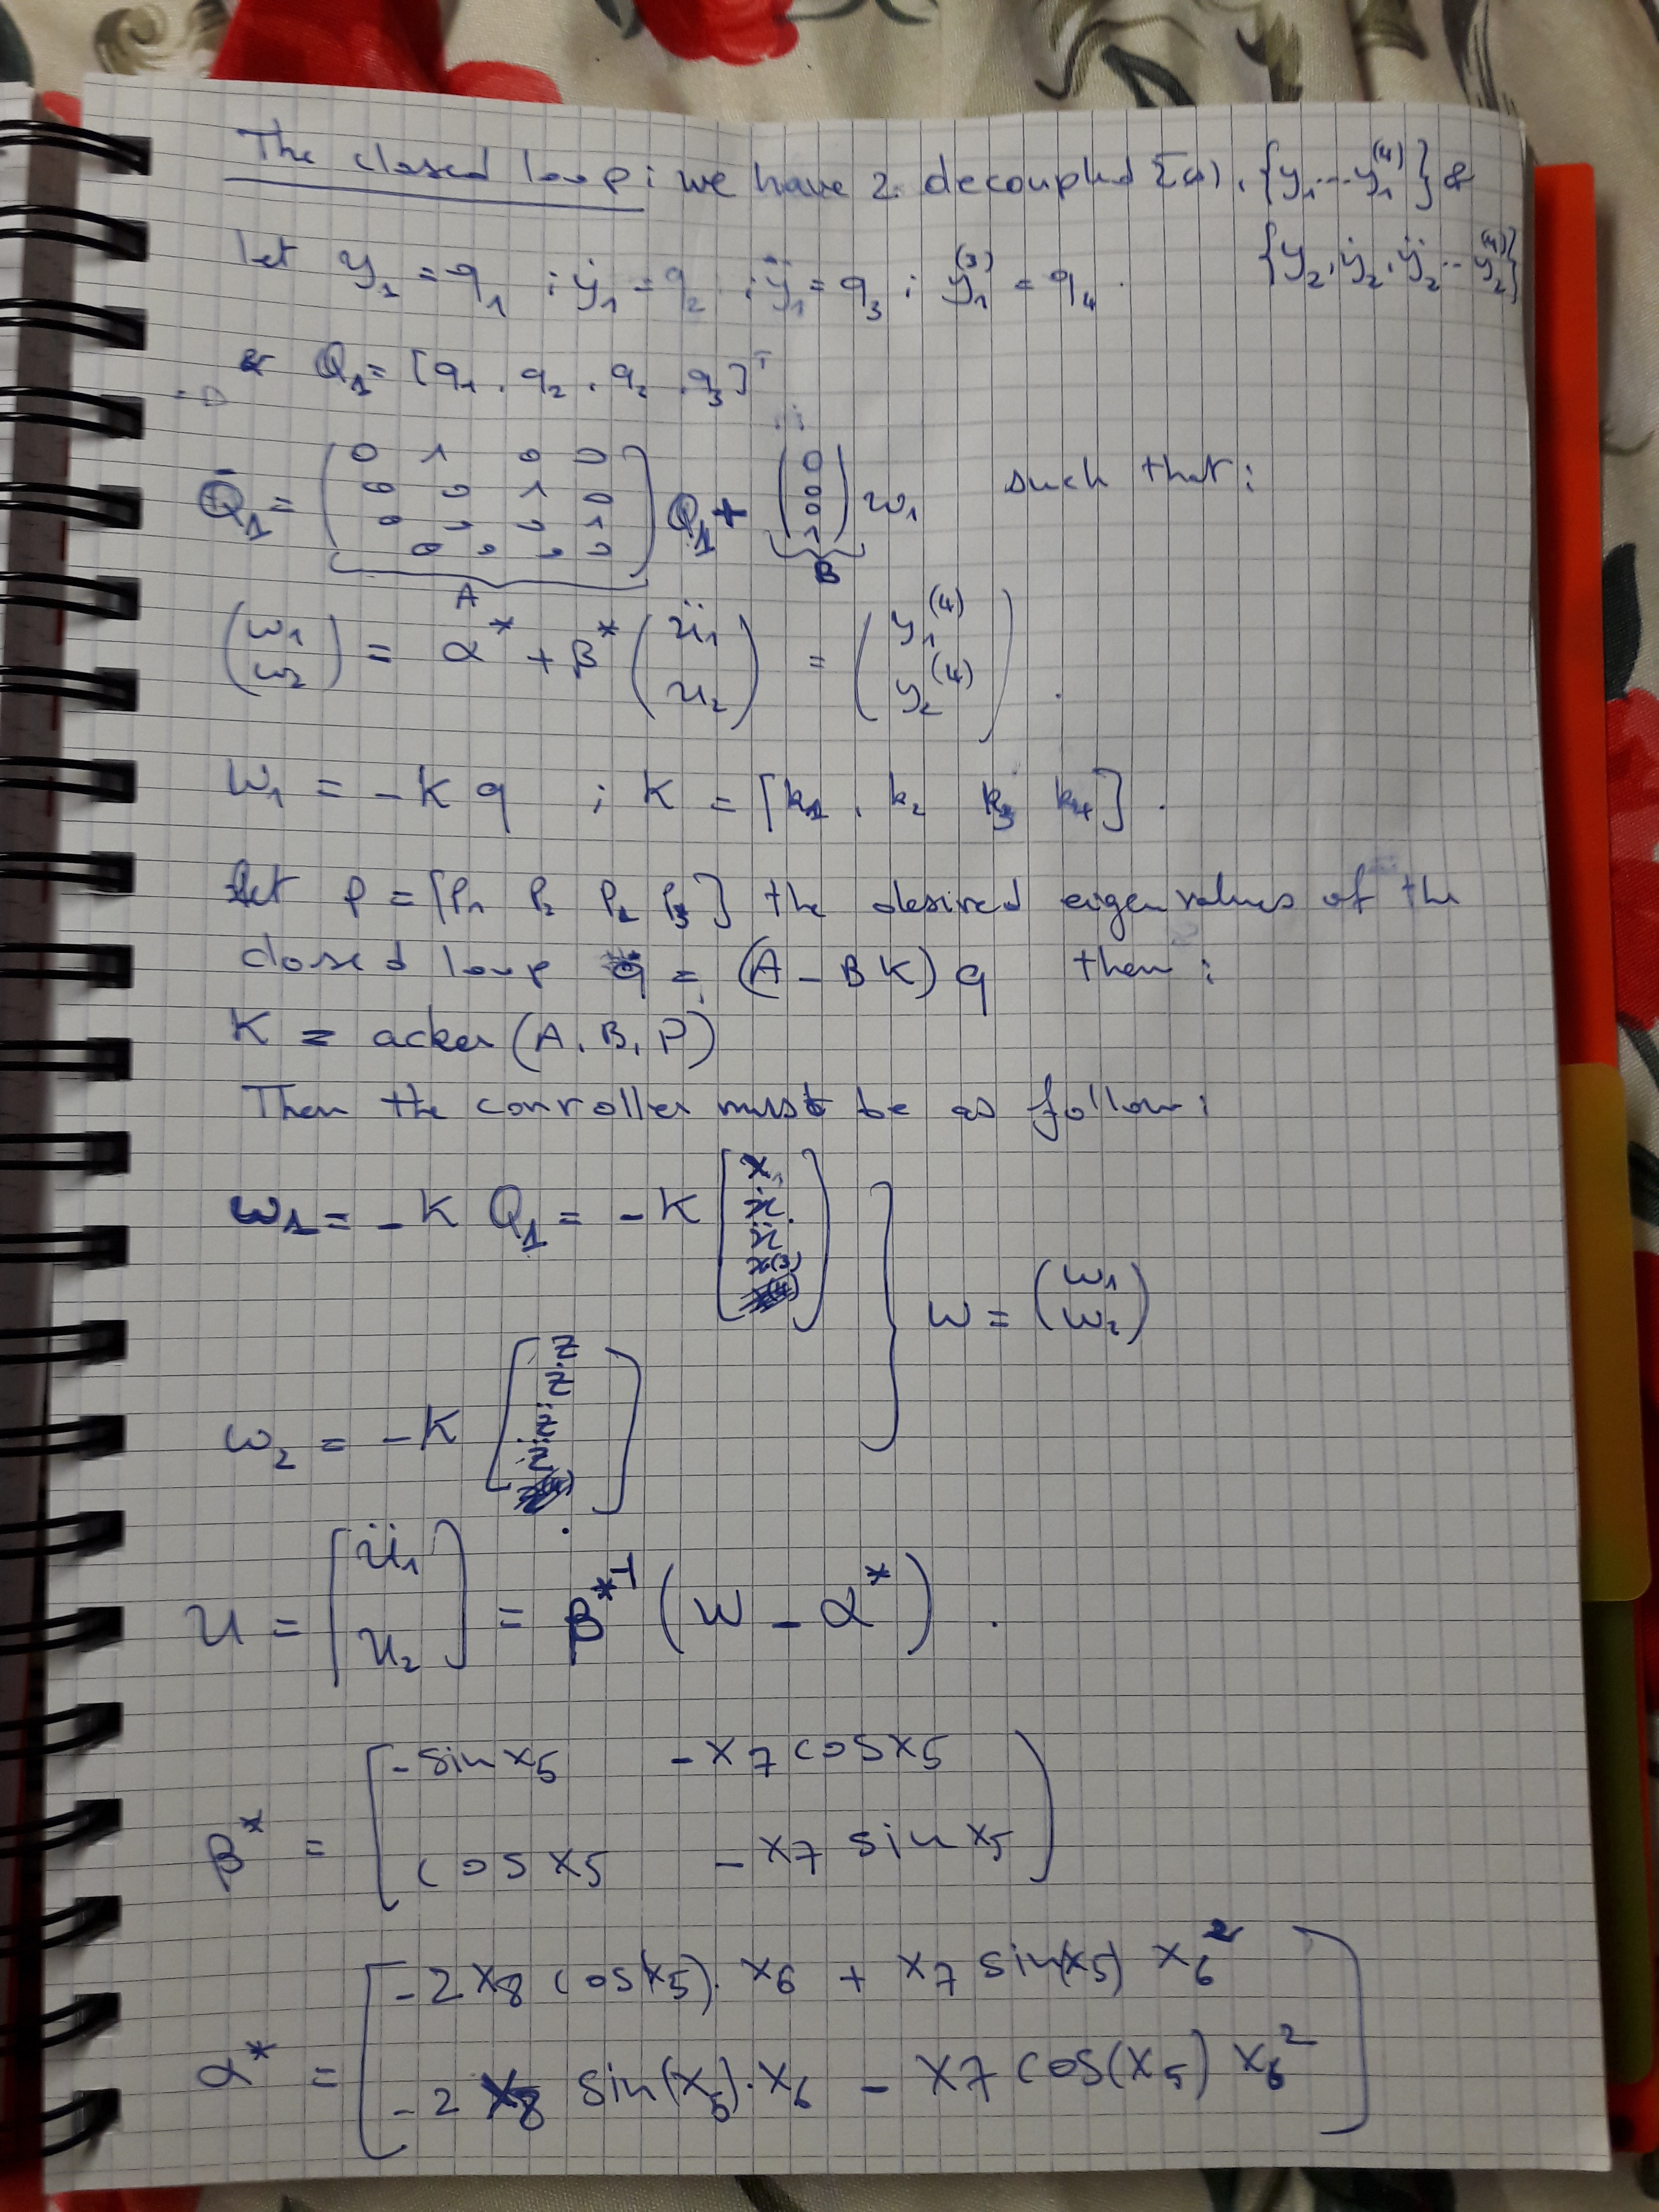 The closed loop: we have 2 decoupled {y₁...y₁⁽⁴⁾} &
let y₁ = q₁ ; ẏ₁ = q₂ ; ÿ₁ = q₃ ; y₁⁽³⁾ = q₄. {y₂, ẏ₂, ÿ₂...y₂⁽⁴⁾}
& Q₁ = [q₁, q₂, q₂, q₃]ᵀ
=>
0 1 0 0
0 0 1 0
0 0 0 1
0 0 0 0
Q̇₁ = ( ) Q₁ + ( 0 0 0 1 ) w₁ such that:
A B
(w₁ w₂) = α* + β* (ü₁ u₂) = (y₁⁽⁴⁾ y₂⁽⁴⁾).
w₁ = -K q ; K = [k₁, k₂ k₃ k₄].
Let P = [P₁ P₂ P₂ P₃] the desired eigen values of the
closed loop q̇ = (A - BK) q then:
K = acker(A, B, P)
Then the conroller must be as follow:
w₁ = -K Q₁ = -K [x, ẋ, ẍ, x⁽³⁾]
w = (w₁ w₂)
w₂ = -K [z ż z̈ z⃛]
u = [ü₁ u₂] = β*⁻¹ (w - α*).
β* = [-sin x₅ -x₇ cos x₅
cos x₅ -x₇ sin x₅]
α* = [-2 x₈ cos(x₅). x₆ + x₇ sin(x₅) x₆²
-2 x₈ sin(x₅). x₆ - x₇ cos(x₅) x₆²]